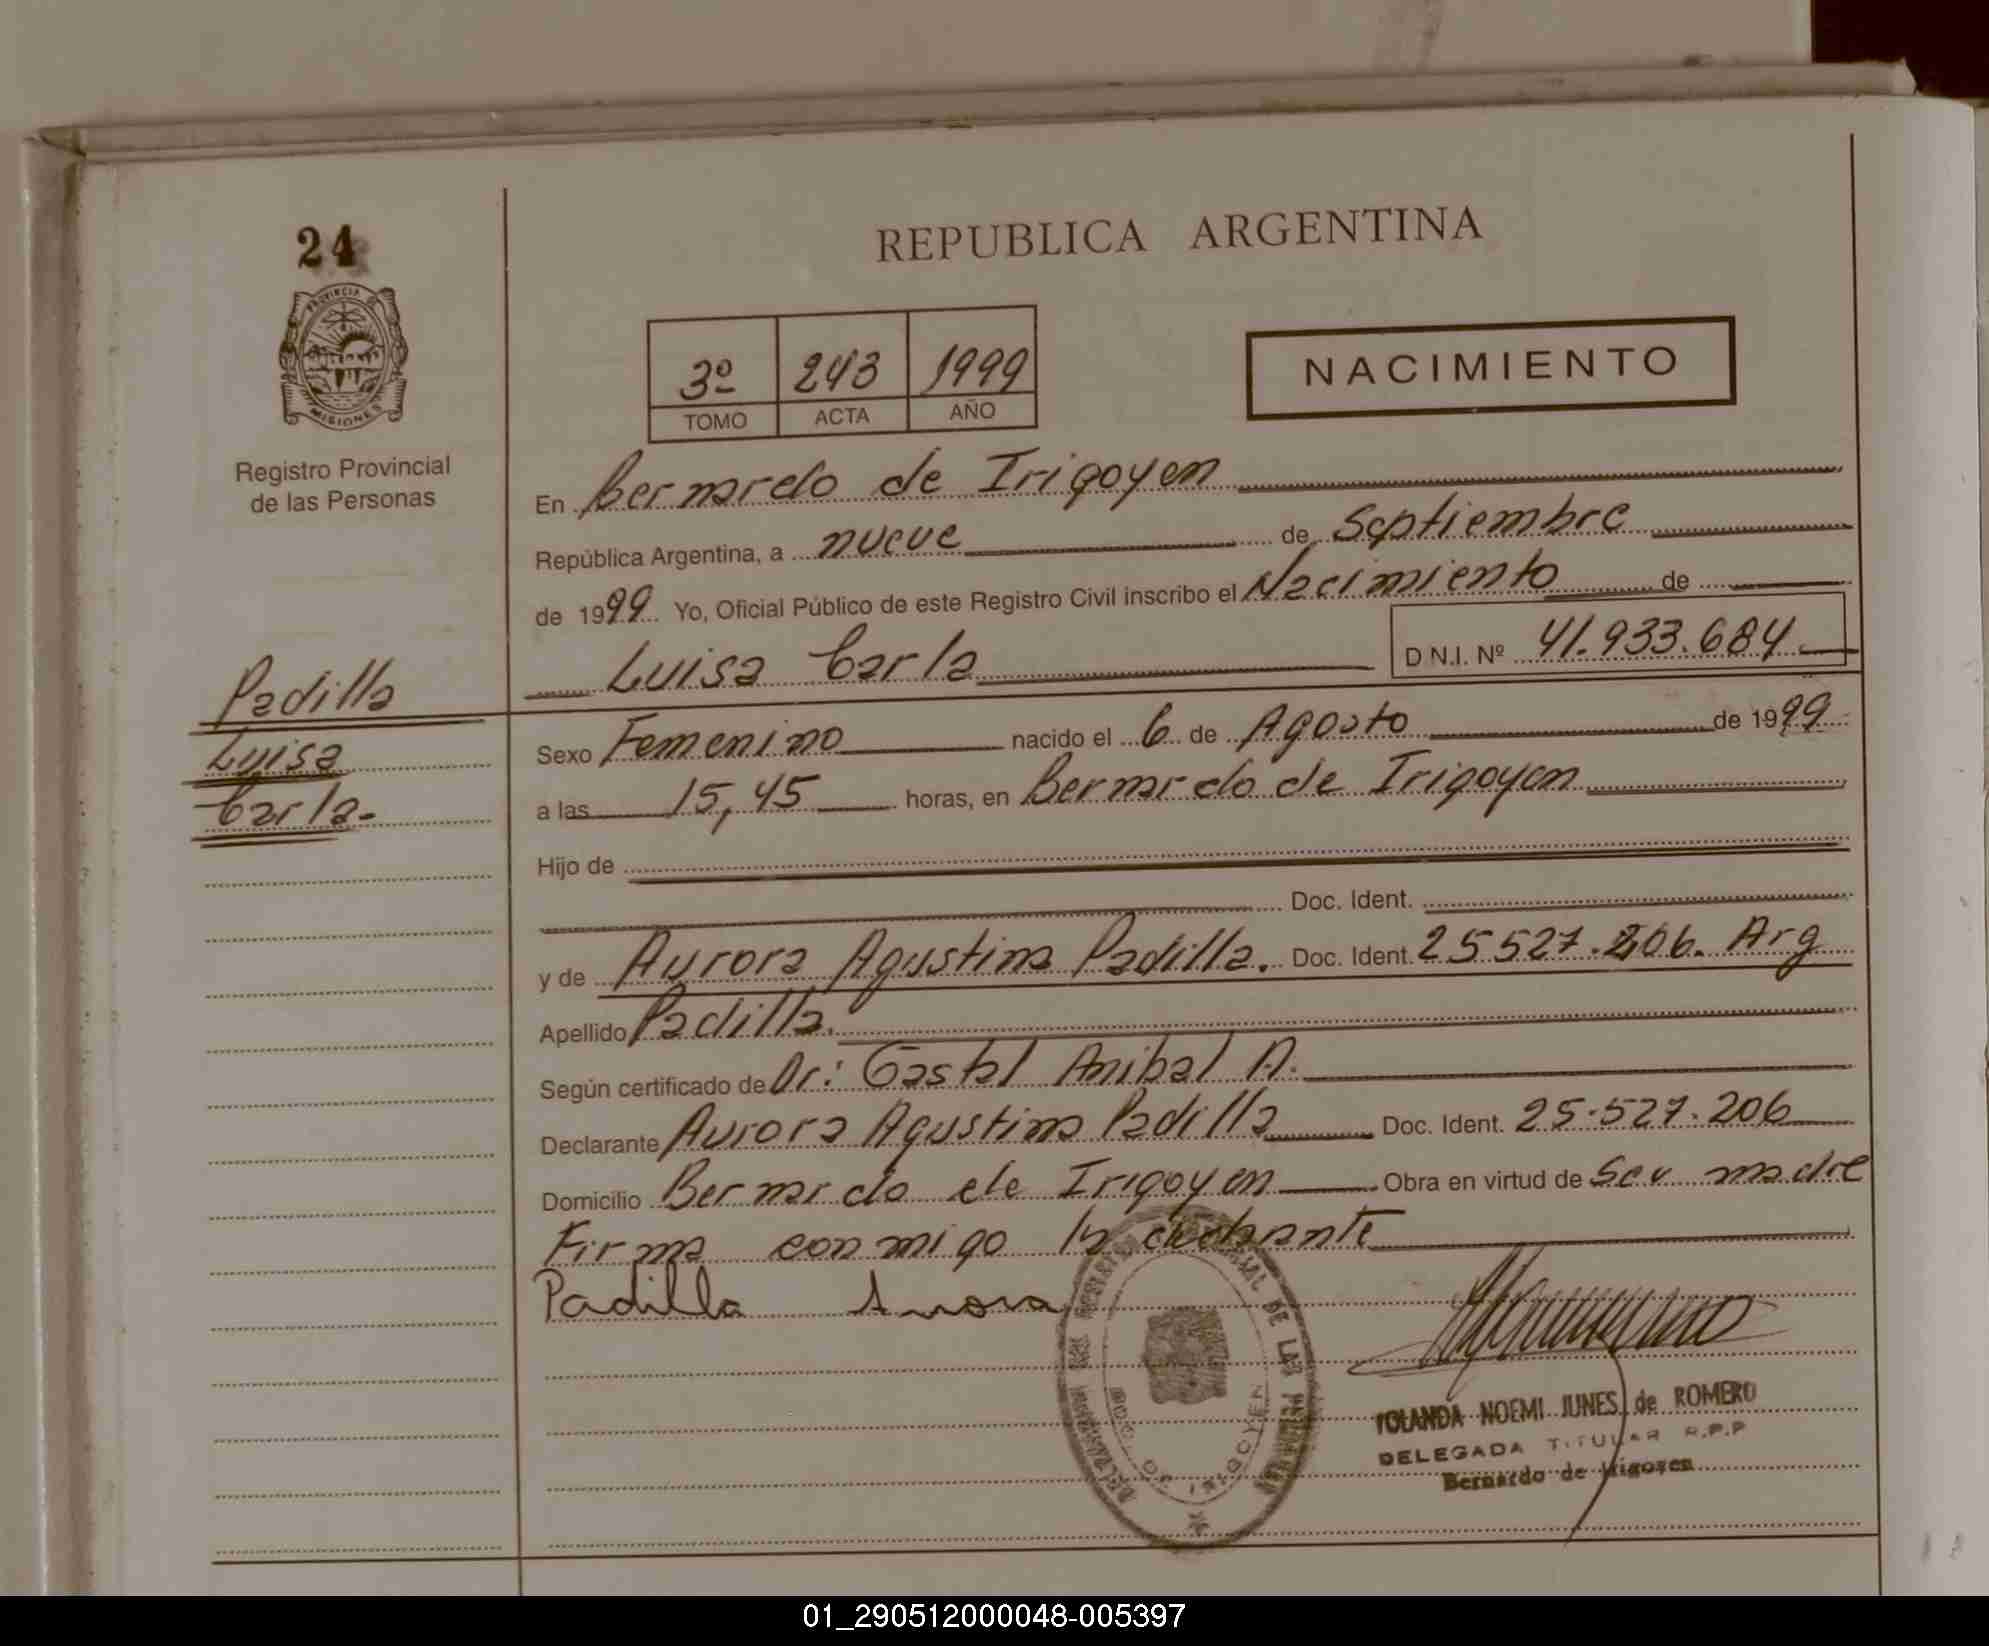 24
PROVINCIA DE
MISIONES
Registro Provincial
de las Personas
Padilla
Luisa
Carla-
REPUBLICA ARGENTINA
3º 243 1999
TOMO ACTA AÑO
NACIMIENTO
En Bernardo de Irigoyen
República Argentina, a nueve de Septiembre
de 1999 Yo, Oficial Público de este Registro Civil inscribo el Nacimiento de
Luisa Carla D N.I. Nº 41.933.684
Sexo Femenino nacido el 6 de Agosto de 1999
a las 15,45 horas, en Bernardo de Irigoyen
Hijo de
Doc. Ident.
y de Aurora Agustina Padilla. Doc. Ident. 25527.206. Arg
Apellido Padilla.
Según certificado de Dr: Gastal Anibal A.
Declarante Aurora Agustina Padilla Doc. Ident. 25.527.206
Domicilio Bernardo de Irigoyen Obra en virtud de Ser madre
Firma conmigo la
Padilla Aurora
DE LAS
DE IRIGOYEN
YOLANDA NOEMI JUNES de ROMERO
DELEGADA TITULAR R.P.P
Bernardo de Irigoyen
01_290512000048-005397